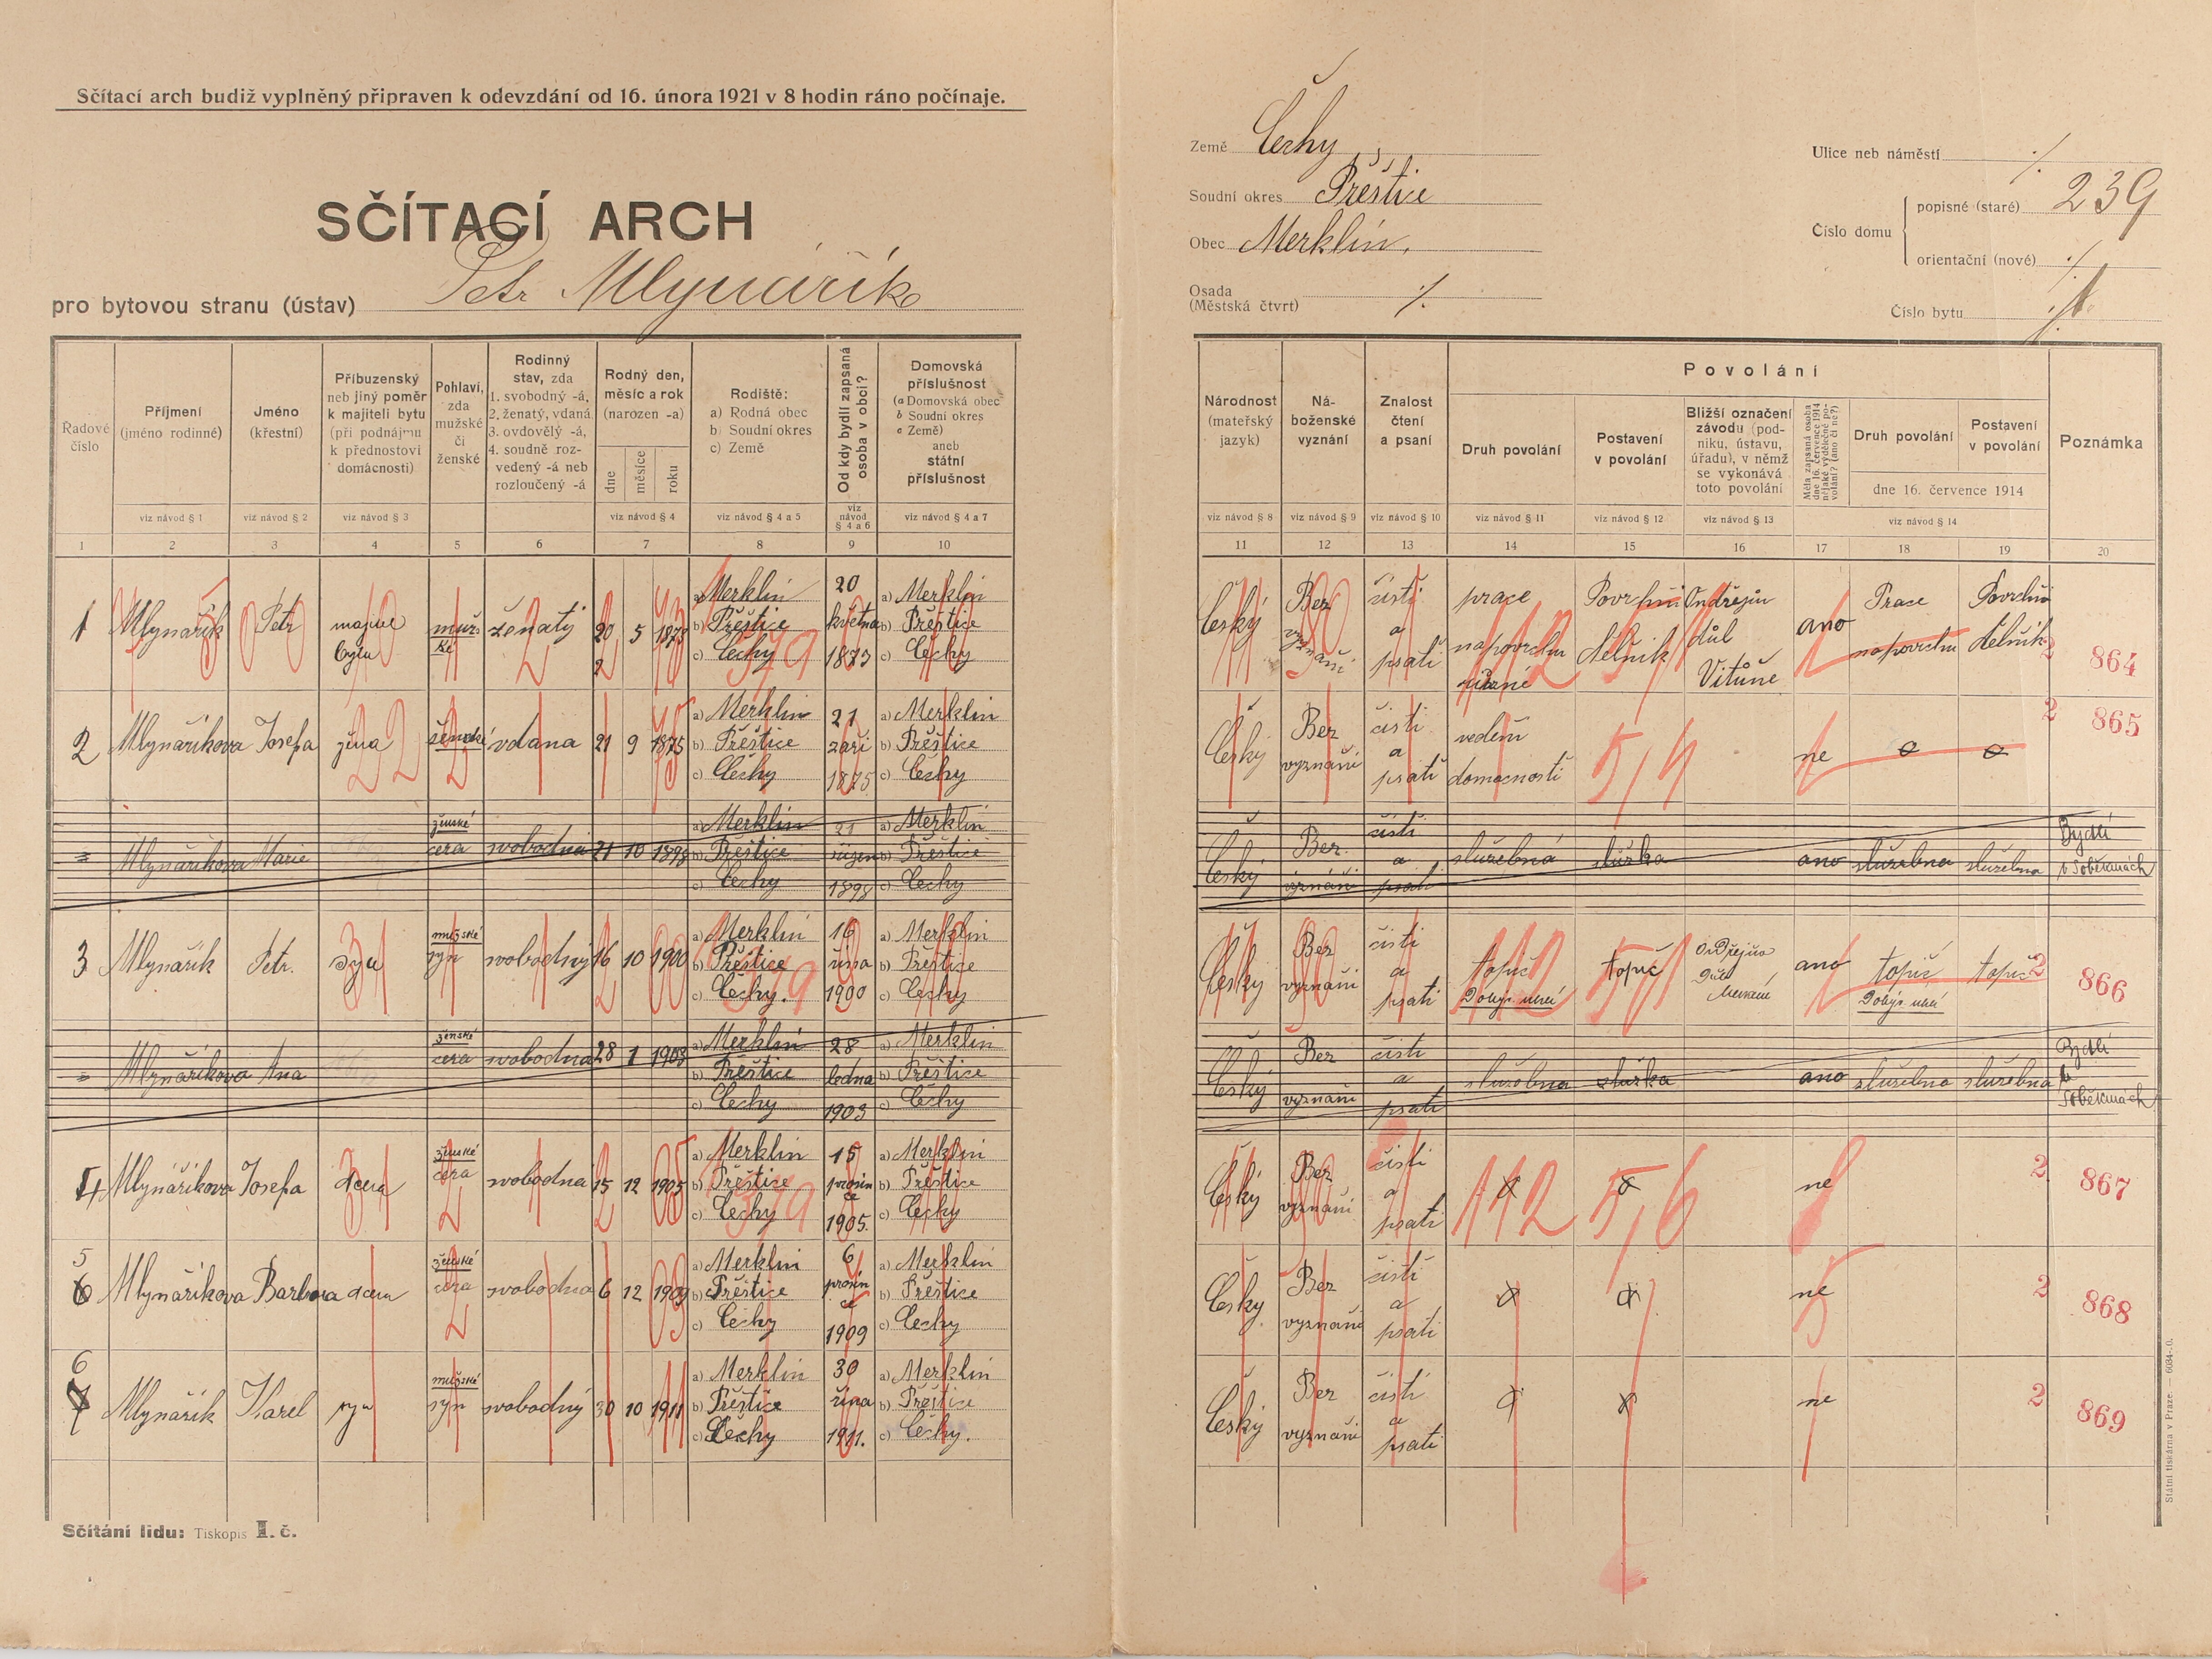 Sčítací arch budiž vyplněný připraven k odevzdání od 16. února 1921 v 8 hodin ráno počínaje.
SČÍTACÍ ARCH
pro bytovou stranu (ústav) Petr Mlynářík
Země Čechy
Soudní okres Přeštice
Obec Merklín.
Osada
(Městská čtvrt) ·/.
Ulice neb náměstí ·/.
Číslo domu
popisné (staré) 239
orientační (nové) ·/.
Číslo bytu
Řadové číslo
Příjmení (jméno rodinné)
Jméno (křestní)
Příbuzenský neb jiný poměr k majiteli bytu (při podnájmu k přednostovi domácnosti)
Pohlaví, zda mužské či ženské
Rodinný stav, zda 1. svobodný -á, 2. ženatý, vdaná 3. ovdovělý -á, 4. soudně rozvedený -á neb rozloučený -á
Rodný den, měsíc a rok (narozen -a)
dne měsíce roku
Rodiště: a) Rodná obec b) Soudní okres c) Země
Od kdy bydlí zapsaná osoba v obci?
Domovská příslušnost (a Domovská obec b Soudní okres c Země) aneb státní příslušnost
Národnost (mateřský jazyk)
Náboženské vyznání
Znalost čtení a psaní
Povolání
Druh povolání
Postavení v povolání
Bližší označení závodu (podniku, ústavu, úřadu), v němž se vykonává toto povolání
Měla zapsaná osoba dne 16. července 1914 nějaké výdělečné povolání? (ano či ne?)
Druh povolání
Postavení v povolání
dne 16. července 1914
Poznámka
viz návod § 1 viz návod § 2 viz návod § 3 viz návod § 4 viz návod § 4 a 5 viz návod § 4 a 6 viz návod § 4 a 7
viz návod § 8 viz návod § 9 viz návod § 10 viz návod § 11 viz návod § 12 viz návod § 13 viz návod § 14
1 2 3 4 5 6 7 8 9 10 11 12 13 14 15 16 17 18 19 20
1 Mlynařík Petr majitel bytu mužské ženatý 20 5 1873
a) Merklín b) Přeštice c) Čechy
20 května 1873
a) Merklín b) Přeštice c) Čechy
český Bez vyznání čísti a psati prace napovrchu Povrchní dělník Ondřejův důl Vitůně ano Prace napovrchu Povrchní dělník 864
2 Mlynaříkova Josefa žena ženské vdana 21 9 1875
a) Merklin b) Přeštice c) Čechy
21 září 1875
a) Merklin b) Přeštice c) Čechy
český Bez vyznání čisti a psati vedení domacnosti ne 865
Mlynaříkova Marie ženské cera svobodna 21 10 1898
a) Merklin b) Přeštice c) Čechy
21 1898
a) Merklin b) Přeštice c) Čechy
český Bez vyznání čisti a psati služebná služka ano služebna služebna Bydlí v Soběkurách
3 Mlynařík Petr. syn mužské syn svobodný 16 10 1900
a) Merklin b) Přeštice c) Čechy.
16 října 1900
a) Merklin b) Přeštice c) Čechy
český Bez vyznání čisti a psati topič Dobýv. uhlí topič ano topič Dobýv. uhlí topič 866
Mlynaříkova Ana ženské cera svobodna 28 1 1903
a) Merklin b) Přeštice c) Čechy
28 ledna 1903
a) Merklin b) Přeštice c) Čechy
český Bez vyznání čisti a psati služebna služka ano služebna služebna Bydlí v Soběkurách
4 Mlynaříkova Josefa dcera ženské cera svobodna 15 12 1905
a) Merklin b) Přeštice c) Čechy
15 prosince 1905.
a) Merklin b) Přeštice c) Čechy
český Bez vyznáni čisti a psati 112 5/6 ne 867
5 Mlynaříkova Barbora dcera ženské cera svobodna 6 12 1909
a) Merklin b) Přeštice c) Čechy
6 prosince 1909
a) Merklin b) Přeštice c) Čechy
český Bez vyznani čisti a psati ne 868
6 Mlynařík Karel syn mužské syn svobodný 30 10 1911
a) Merklin b) Přeštice c) Čechy
30 října 1911.
a) Merklin b) Přeštice c) Čechy.
český Bez vyznáni čisti a psati ne 869
Sčítání lidu: Tiskopis I. č.
Státní tiskárna v Praze. — 6034-.0.